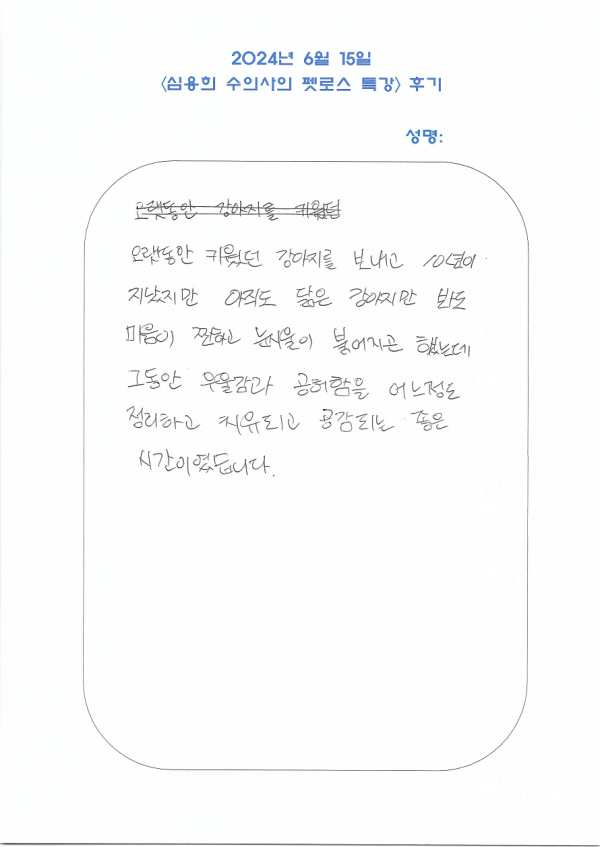 2024년 6월 15일
<심용희 수의사의 펫로스 특강> 후기
성명:
오랫동안 강아지를 키웠던
오랫동안 키웠던 강아지를 보내고 10년이
지났지만 아직도 닮은 강아지만 봐도
마음이 짠하고 눈시울이 붉어지곤 했는데
그동안 우울감과 공허함을 어느정도
정리하고 치유되고 공감되는 좋은
시간이였습니다.